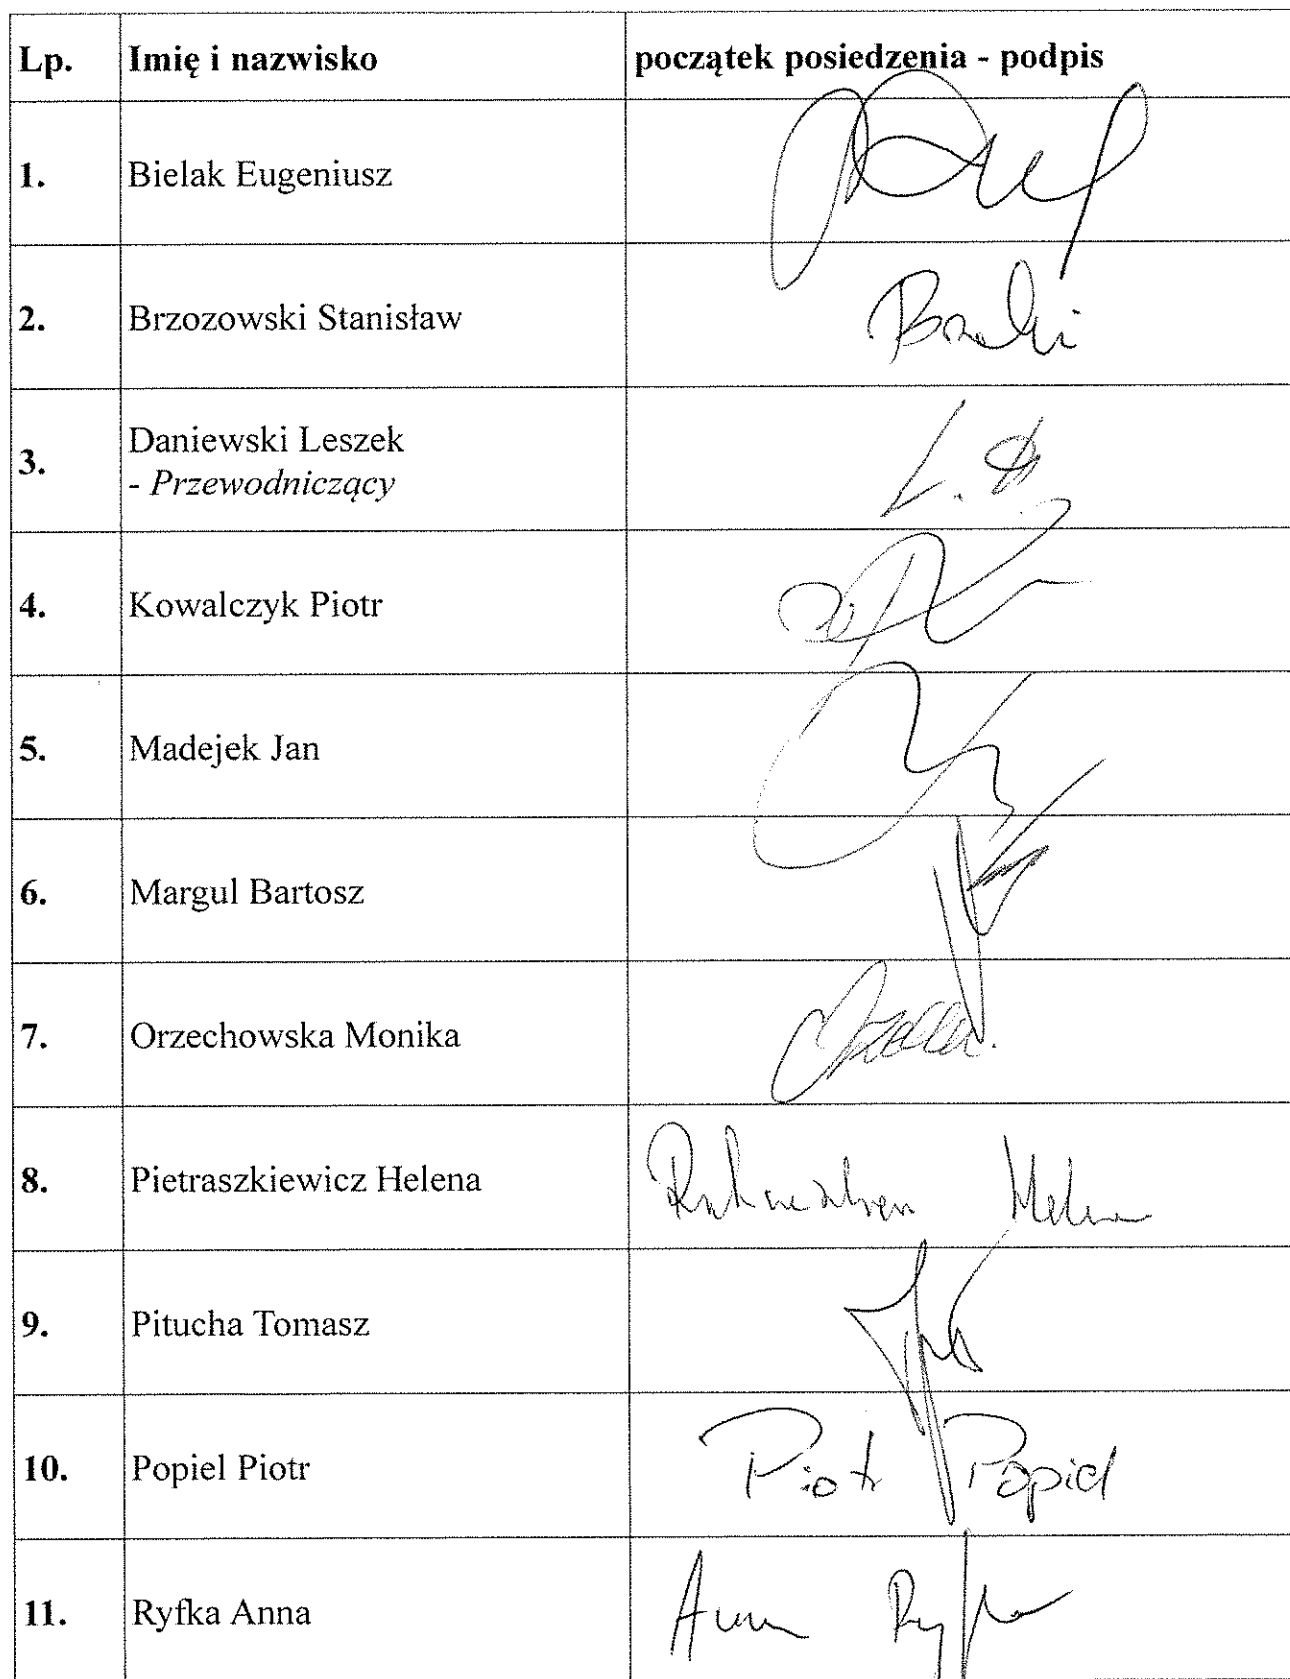 Lp. Imię i nazwisko początek posiedzenia - podpis
1. Bielak Eugeniusz
2. Brzozowski Stanisław
3. Daniewski Leszek
- Przewodniczący
4. Kowalczyk Piotr
5. Madejek Jan
6. Margul Bartosz
7. Orzechowska Monika
8. Pietraszkiewicz Helena
9. Pitucha Tomasz
10. Popiel Piotr Piotr Popiel
11. Ryfka Anna Anna Ryfka